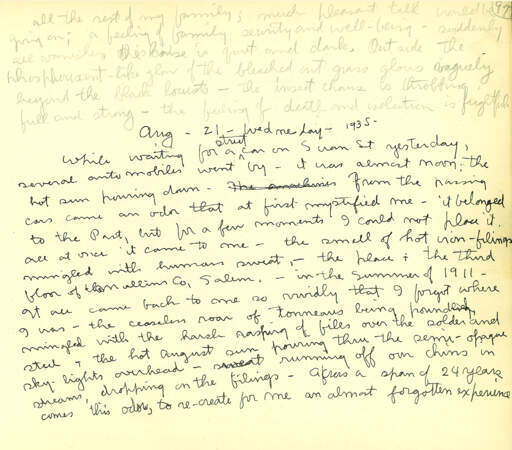 all the rest of my family; much pleasant talk would be
going on; a feeling of family security and well-being - suddenly
all vanishes. The house is quiet and dark. Outside the
phosphorescent-like glow of the bleached out grass glows vaguely
beyond the black locusts - the insect chorus is throbbing
full and strong - the feeling of death and isolation is frightful
Aug - 21 - Wednesday - 1935 -
While waiting for a street car on Swan St yesterday,
several automobiles went by - it was almost noon; the
hot sun pouring down - The machines From the passing
cars came an odor that at first mystified me - it belonged
to the Past, but for a few moments I could not place it.
all at once it came to me - the smell of hot iron-filings
mingled with human sweat, - the place; the third
floor of the Mullins Co, Salem. - in the Summer of 1911 -
It all came back to me so vividly that I forgot where
I was - the ceaseless roar of tonneaus being pounded,
mingled with the harsh rasping of files over the solder and
steel - the hot August sun pouring thru the semi-opaque
sky-lights overhead - sweat running off our chins in
streams, dropping on the filings - Across a span of 24 years
comes this odor, to re-create for me an almost forgotten experience